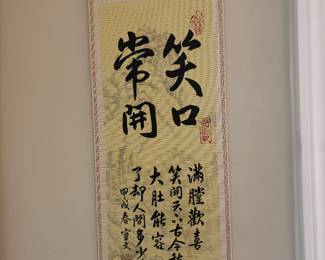 笑口
常開
滿膛歡喜
笑開天下古今
大肚能容
了却人間多少
甲戌春